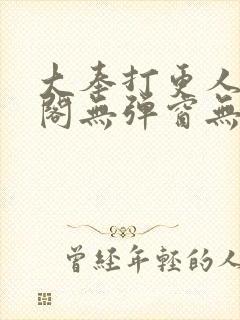 大奉打更人
閣無彈窗無
曾經年輕的人